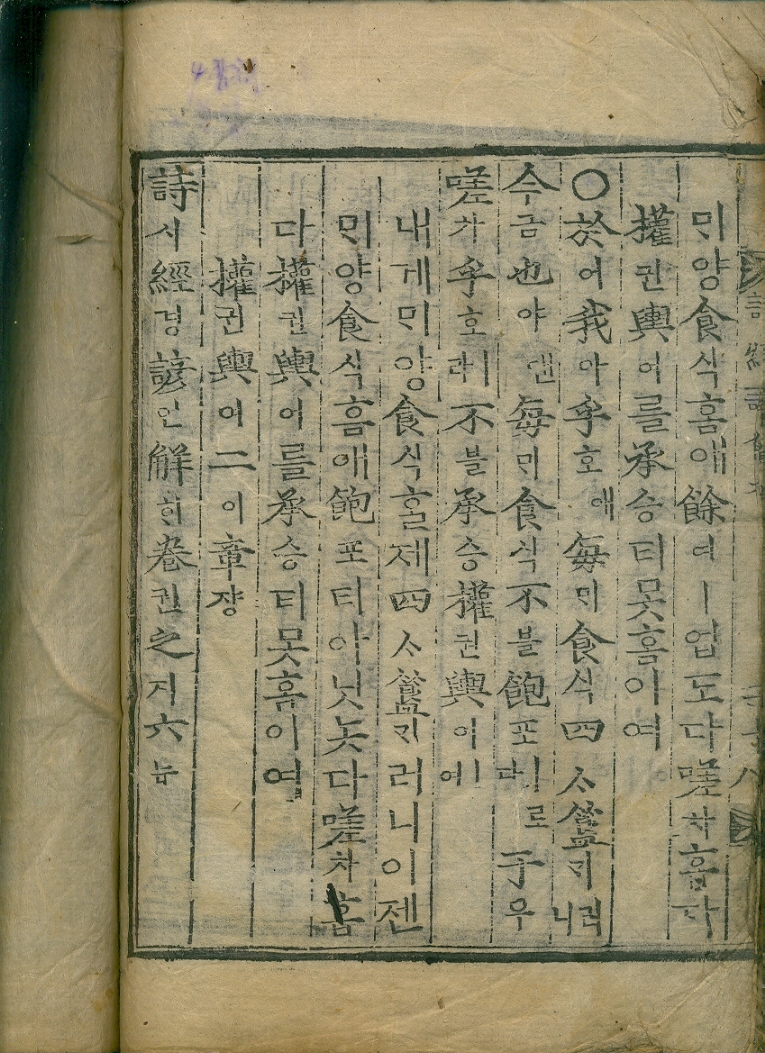 믜양食식홈애餘여ㅣ업도다嗟차홉다
權권輿여를承승티못홈이여
○於어我아乎호애每믜食식四ᄉ簋궤러니
今금也야앤每믜食식不블飽포ㅣ로다于우
嗟차乎호ㅣ라不블承승權권輿여ㅣ여
내게믜양食식홀제四ᄉ簋궤러니이젠
믜양食식홈애飽포티아닛놋다嗟차홉
다權권輿여를承승티못홈이여
權권輿여二이章쟝
詩시經경諺언解ᄒᆡ卷권之지六뉵